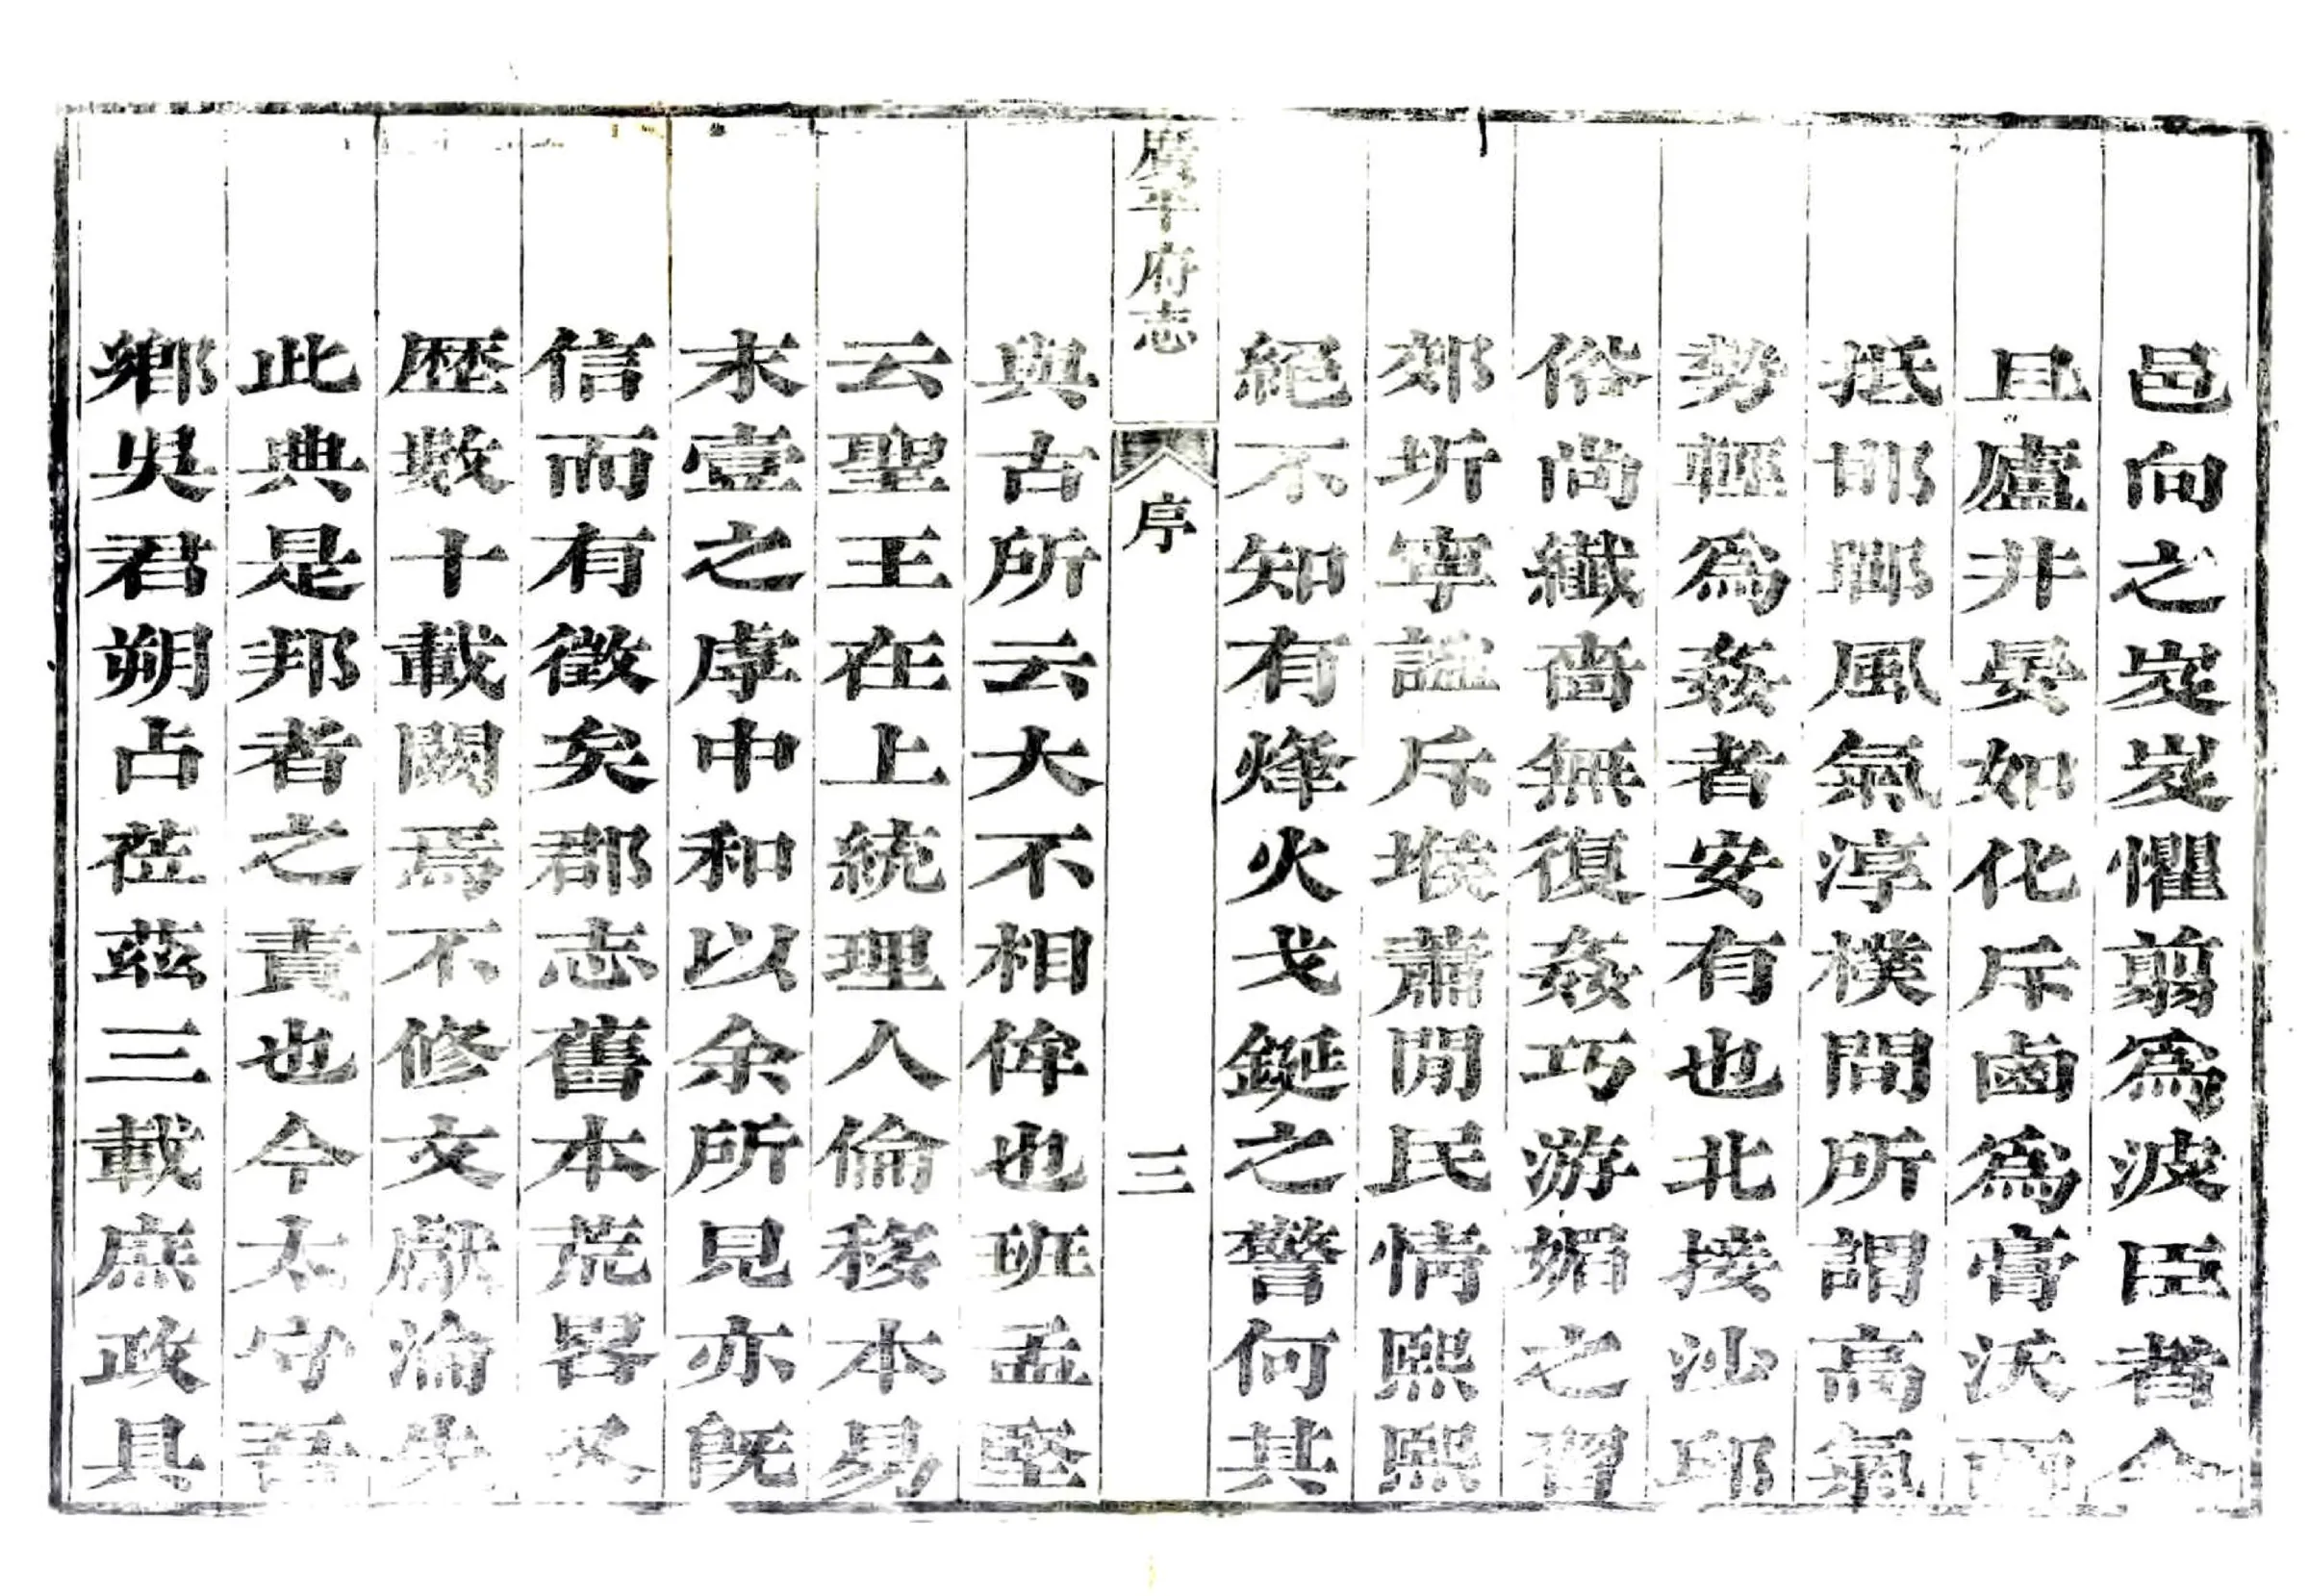 邑向之岌岌懼翦爲波臣者今
且廬井晏如化斥鹵爲膏沃西
抵邯鄲風氣淳樸問所謂高氣
勢輕爲姦者安有也北接沙邱
俗尚纖嗇無復姦巧游媚之習
郊圻寧謐斥堠蕭閒民情熙熙
絕不知有烽火戈鋋之警何其
廣平府志 序 三
與古所云大不相侔也班孟堅
云聖王在上統理人倫移本易
末壹之虖中和以余所見亦旣
信而有徵矣郡志舊本荒畧又
歴數十載闕焉不修文獻淪失
此典是邦者之責也今太守吾
鄉吳君朔占莅茲三載庶政具